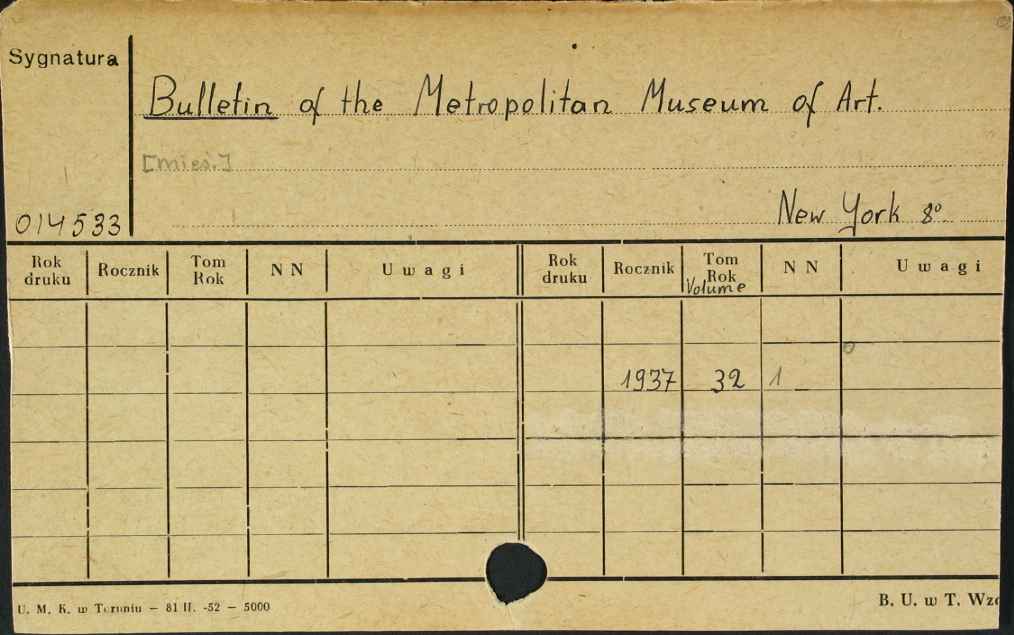 Sygnatura
Bulletin of the Metropolitan Museum of Art.
[mies.]
014533
New York 8º
Rok druku Rocznik Tom Rok N N Uwagi Rok druku Rocznik Tom Rok Volume N N Uwagi
1937 32 1
U. M. K. w Toruniu – 81 II. -52 – 5000
B. U. w T.